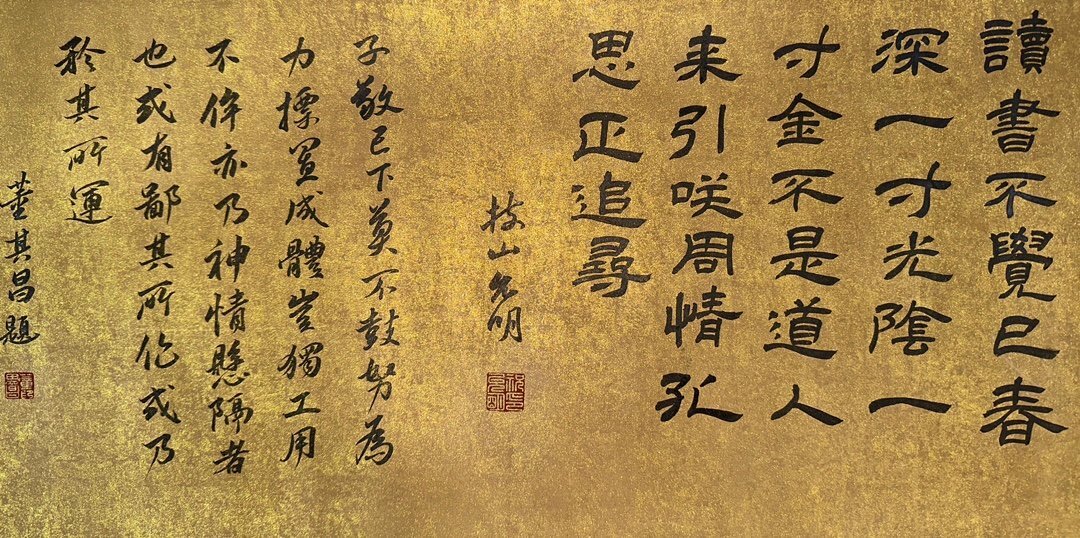 讀書不覺已春
深一寸光陰一
寸金不是道人
来引咲周情孔
思正追尋
枝山允明
子敬已下莫不鼓努為
力標置成體豈獨工用
不侔亦乃神情懸隔者
也或有鄙其所作或乃
矜其所運
董其昌題